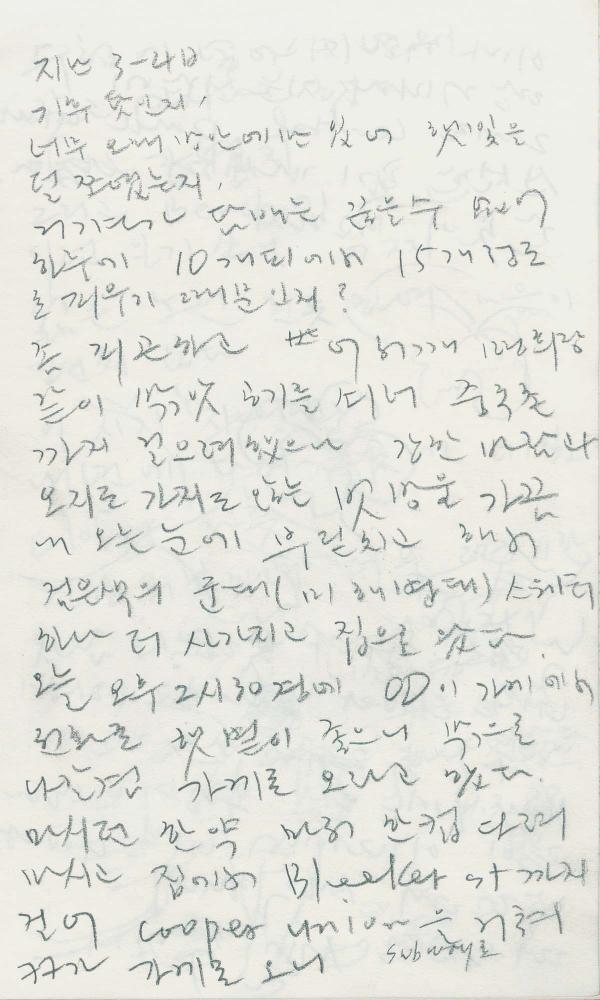 지난 3-4일
기후 탓인지,
너무 오래 방안에만 있어 햇빛을
덜 쪼였는지,
거기다가 담배는 끊을수 없어
하루에 10개피에서 15개정도
로 피우기 때문인지?
좀 피곤하고
같이 밖앗 공기를 쐬러 중국촌
까지 걸으려했으나 강한 바람과
오지도 가지도 않는 빗방울 가끔
내 오는 눈에 부딛치고 해서
검은색의 군대(미 해병대) 스웨터
하나 더 사가지고 집으로 왔다.
오늘 오후 2시30경에 OD이 가게에서
전화로 햇볕이 좋으니 밖으로
나온겸 가게로 오라고 했다.
마시던 한약 마저 한컵 다려
마시고 집에서 Bleeker st 까지
걸어 cooper union을 거쳐
subway로
가게로 오니